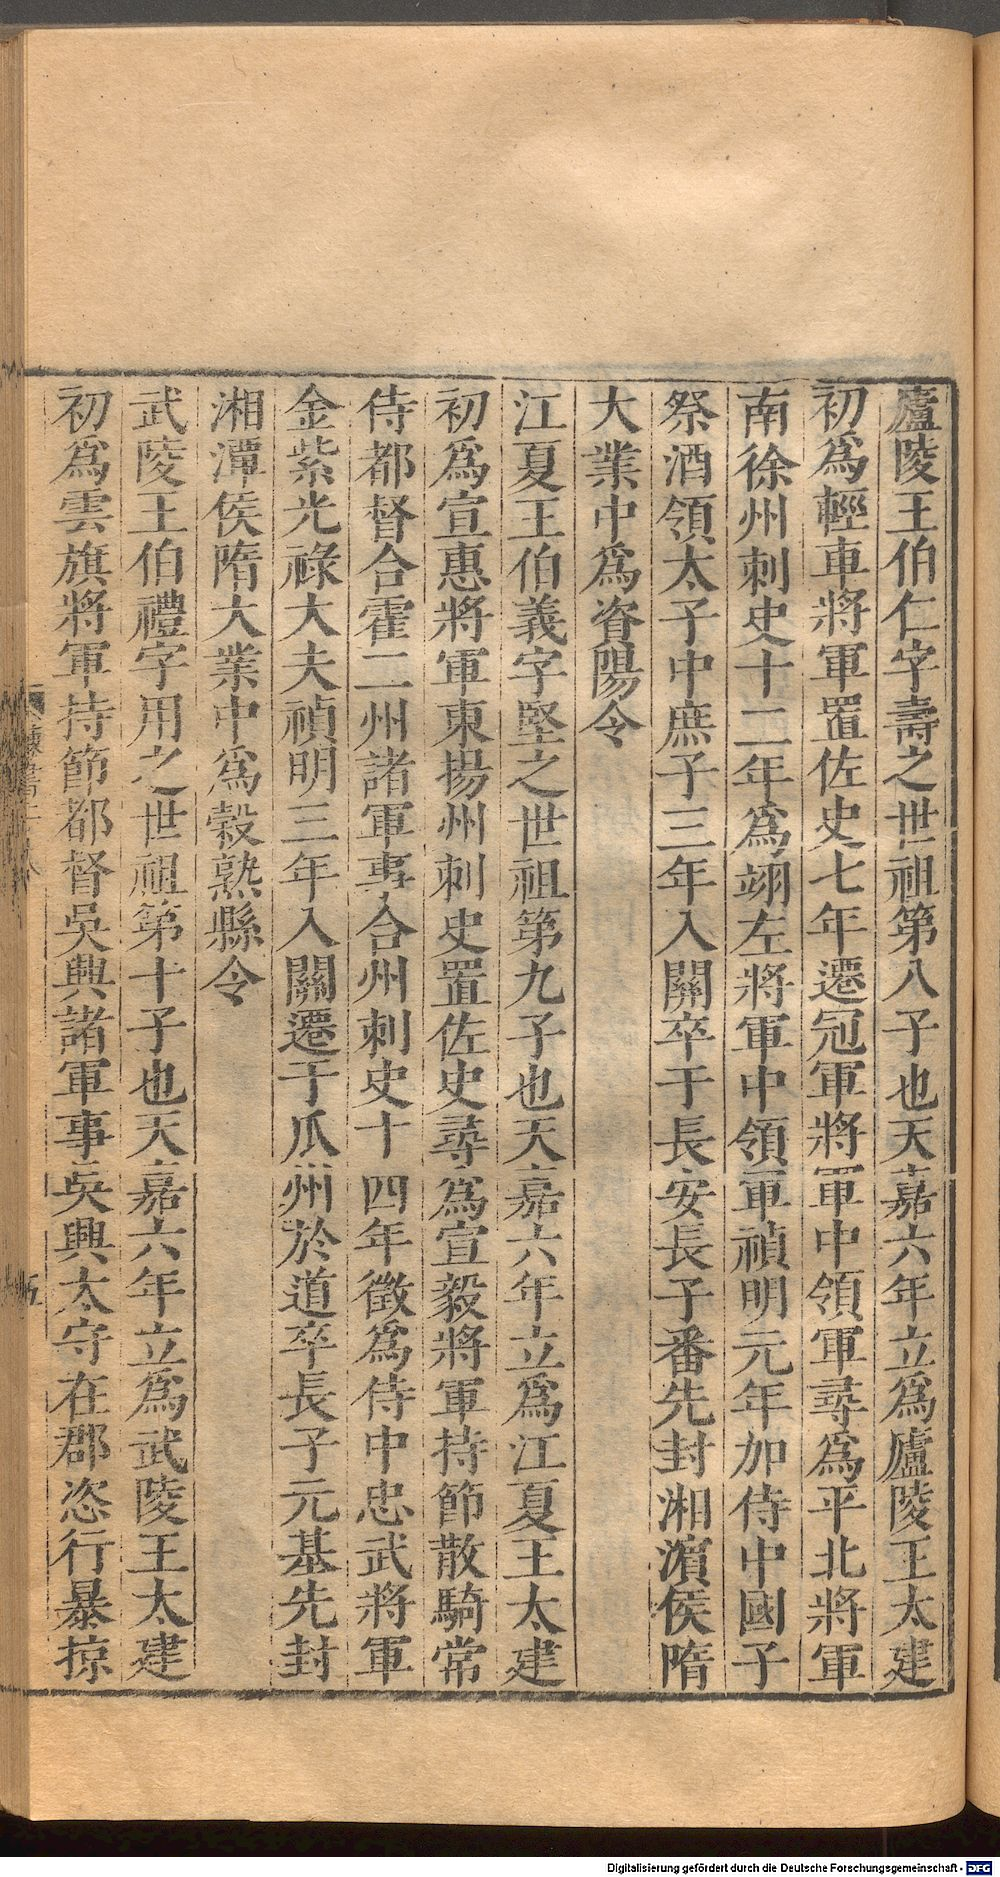 廬陵王伯仁字壽之世祖第八子也天嘉六年立爲廬陵王太建
初爲輕車將軍置佐史七年遷冠軍將軍中領軍尋爲平北將軍
南徐州刺史十二年爲翊左將軍中領軍禎明元年加侍中國子
祭酒領太子中庶子三年入關卒于長安長子番先封湘濵侯隋
大業中爲資陽令
江夏王伯義字堅之世祖第九子也天嘉六年立爲江夏王太建
初爲宣惠將軍東揚州刺史置佐史尋爲宣毅將軍持節散騎常
侍都督合霍二州諸軍事合州刺史十四年徵爲侍中忠武將軍
金紫光祿大夫禎明三年入關遷于瓜州於道卒長子元基先封
湘潭侯隋大業中爲穀熟縣令
武陵王伯禮字用之世祖第十子也天嘉六年立爲武陵王太建
初爲雲旗將軍持節都督吳興諸軍事吳興太守在郡恣行暴掠
五
Digitalisierung gefördert durch die Deutsche Forschungsgemeinschaft - DFG